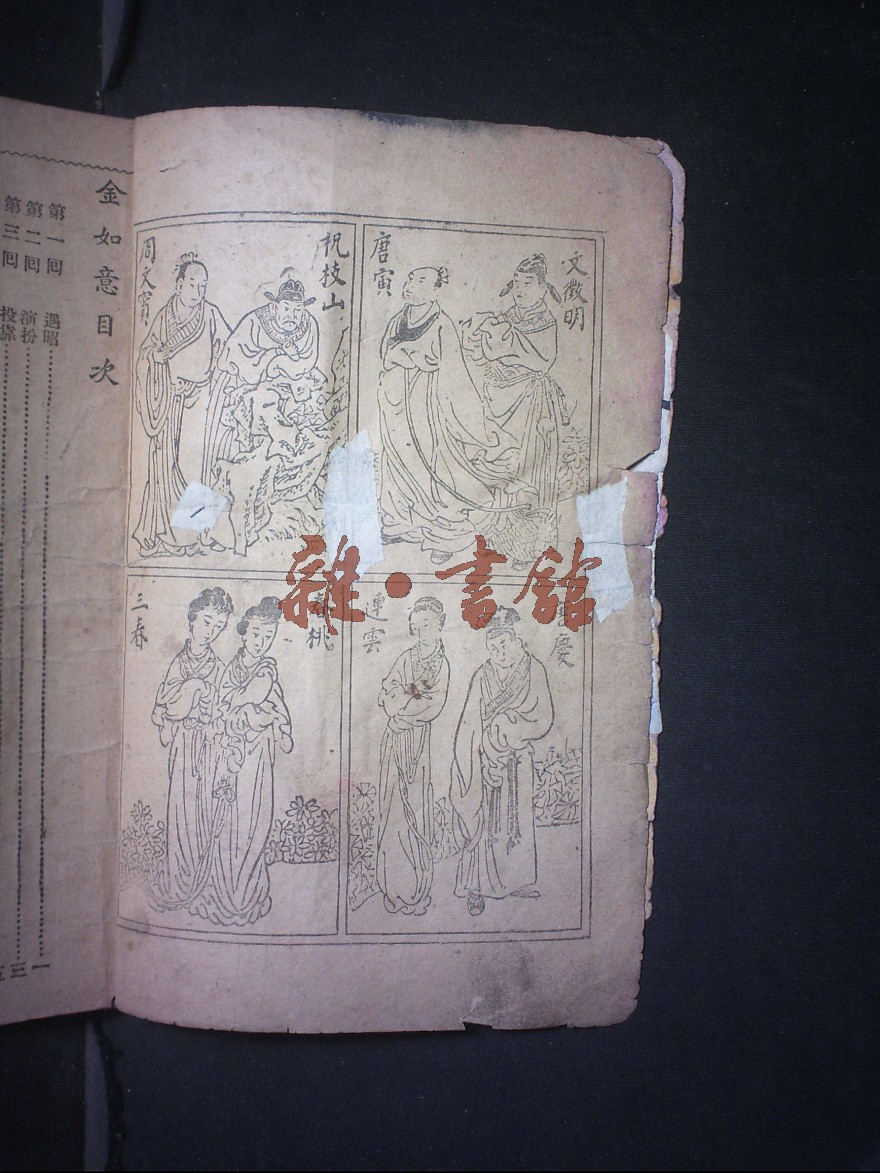 文徵明
唐寅
祝枝山
周文賓
慶
連雲
春桃
三春
金如意目次
第一回 遇昭 一
第二回 演扮 三
第三回 投靠 五
雜·書館